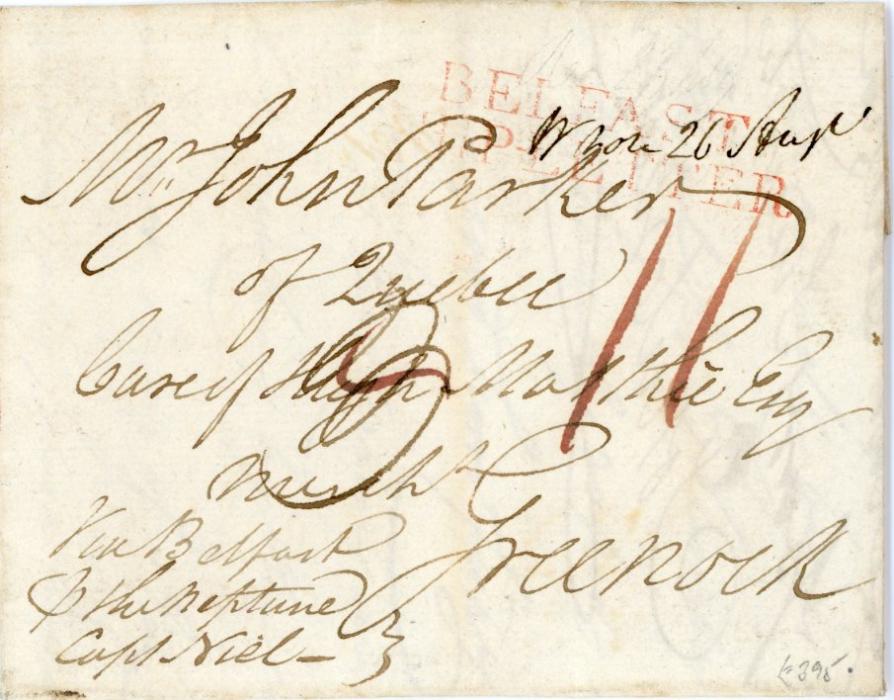 BELFAST
SHIP LETTER
26 Augt
Mr. John Parker
of Quebec
Care of Hugh Matthie Esq
mercht
Greenock
Via Belfast
P the Neptune
Capt Niel
11
395